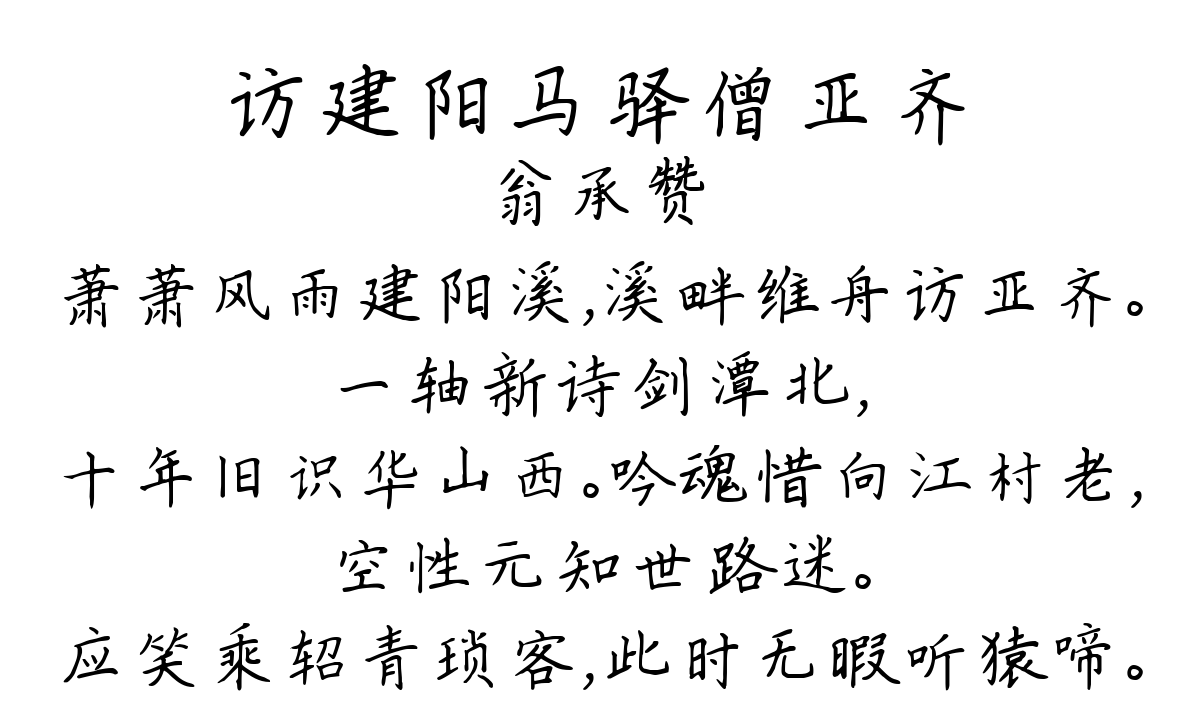 访建阳马驿僧亚齐
翁承赞
萧萧风雨建阳溪,溪畔维舟访亚齐。
一轴新诗剑潭北,
十年旧识华山西。吟魂惜向江村老,
空性元知世路迷。
应笑乘轺青琐客,此时无暇听猿啼。